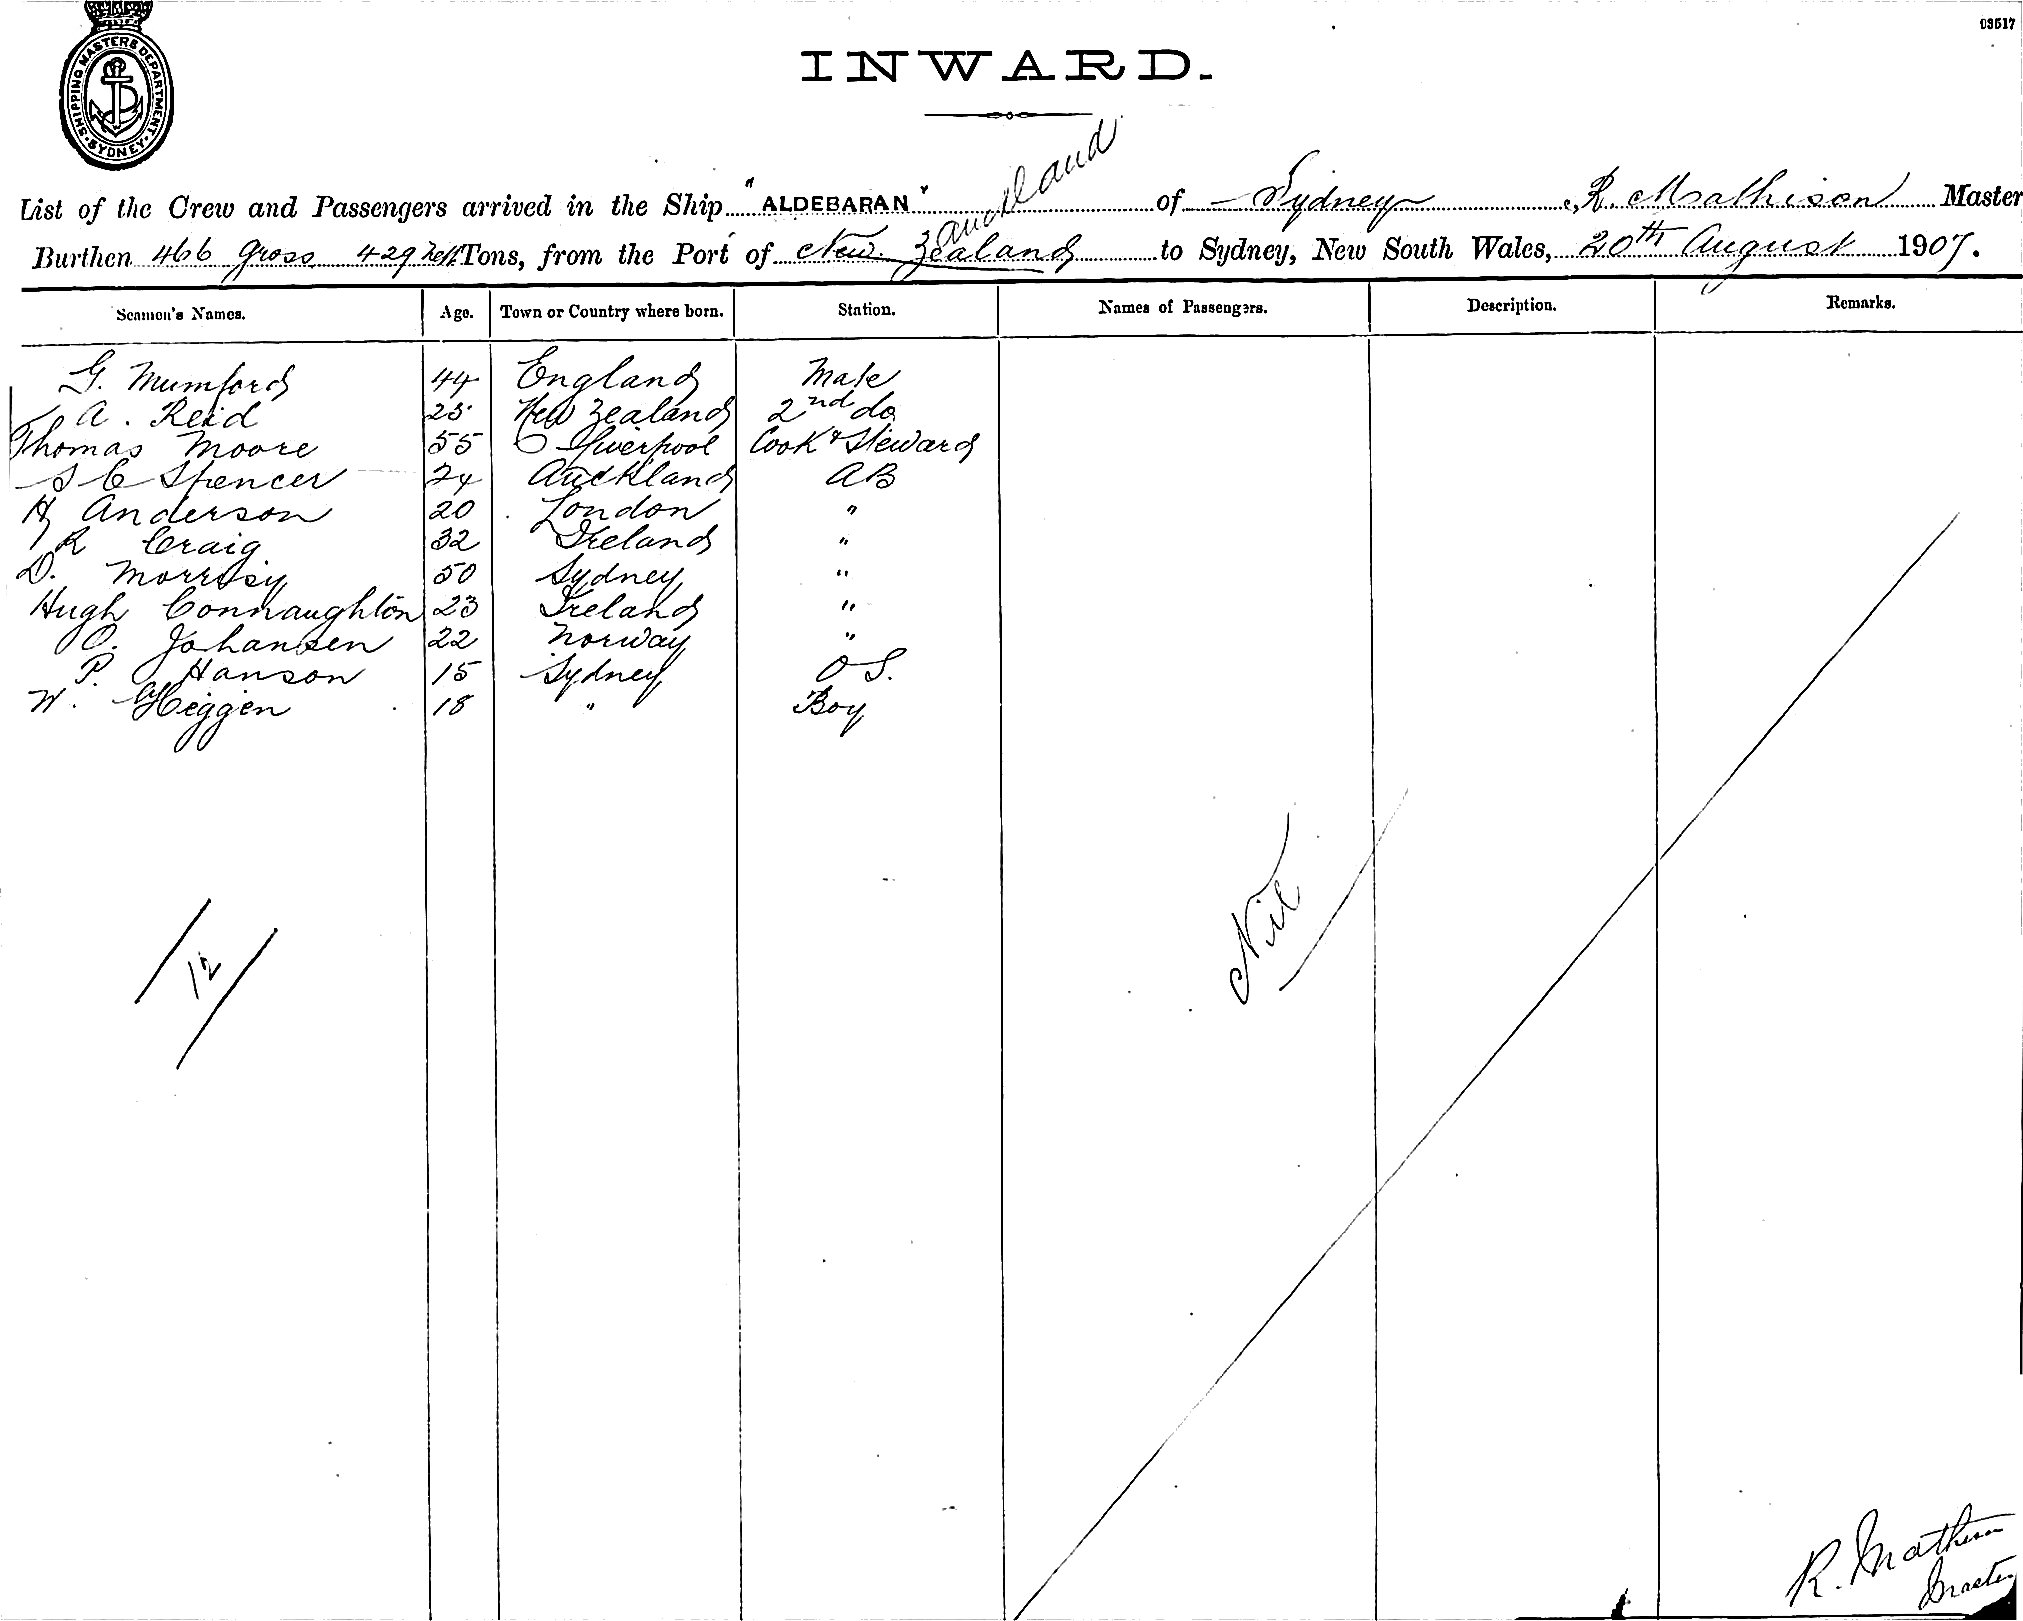 03517
SHIPPING MASTERS DEPARTMENT
SYDNEY
INWARD.
Auckland
List of the Crew and Passengers arrived in the Ship "ALDEBARAN" of Sydney, R. Mathison Master
Burthen 466 gross 429 nett Tons, from the Port of New Zealand to Sydney, New South Wales, 20th August 1907.
Seamen's Names. Age. Town or Country where born. Station. Names of Passengers. Description. Remarks.
G. Mumford 44 England Mate
A. Reid 25 New Zealand 2nd do
Thomas Moore 55 Liverpool Cook & Steward
S C Spencer 24 Auckland AB
H Anderson 20 London "
R Craig 32 Ireland "
D. Morrisy 50 Sydney "
Hugh Connaughton 23 Ireland "
O. Johansen 22 Norway "
P. Hanson 15 Sydney O S.
W. Higgen 18 " Boy
Nil
12
R. Mathison
Master